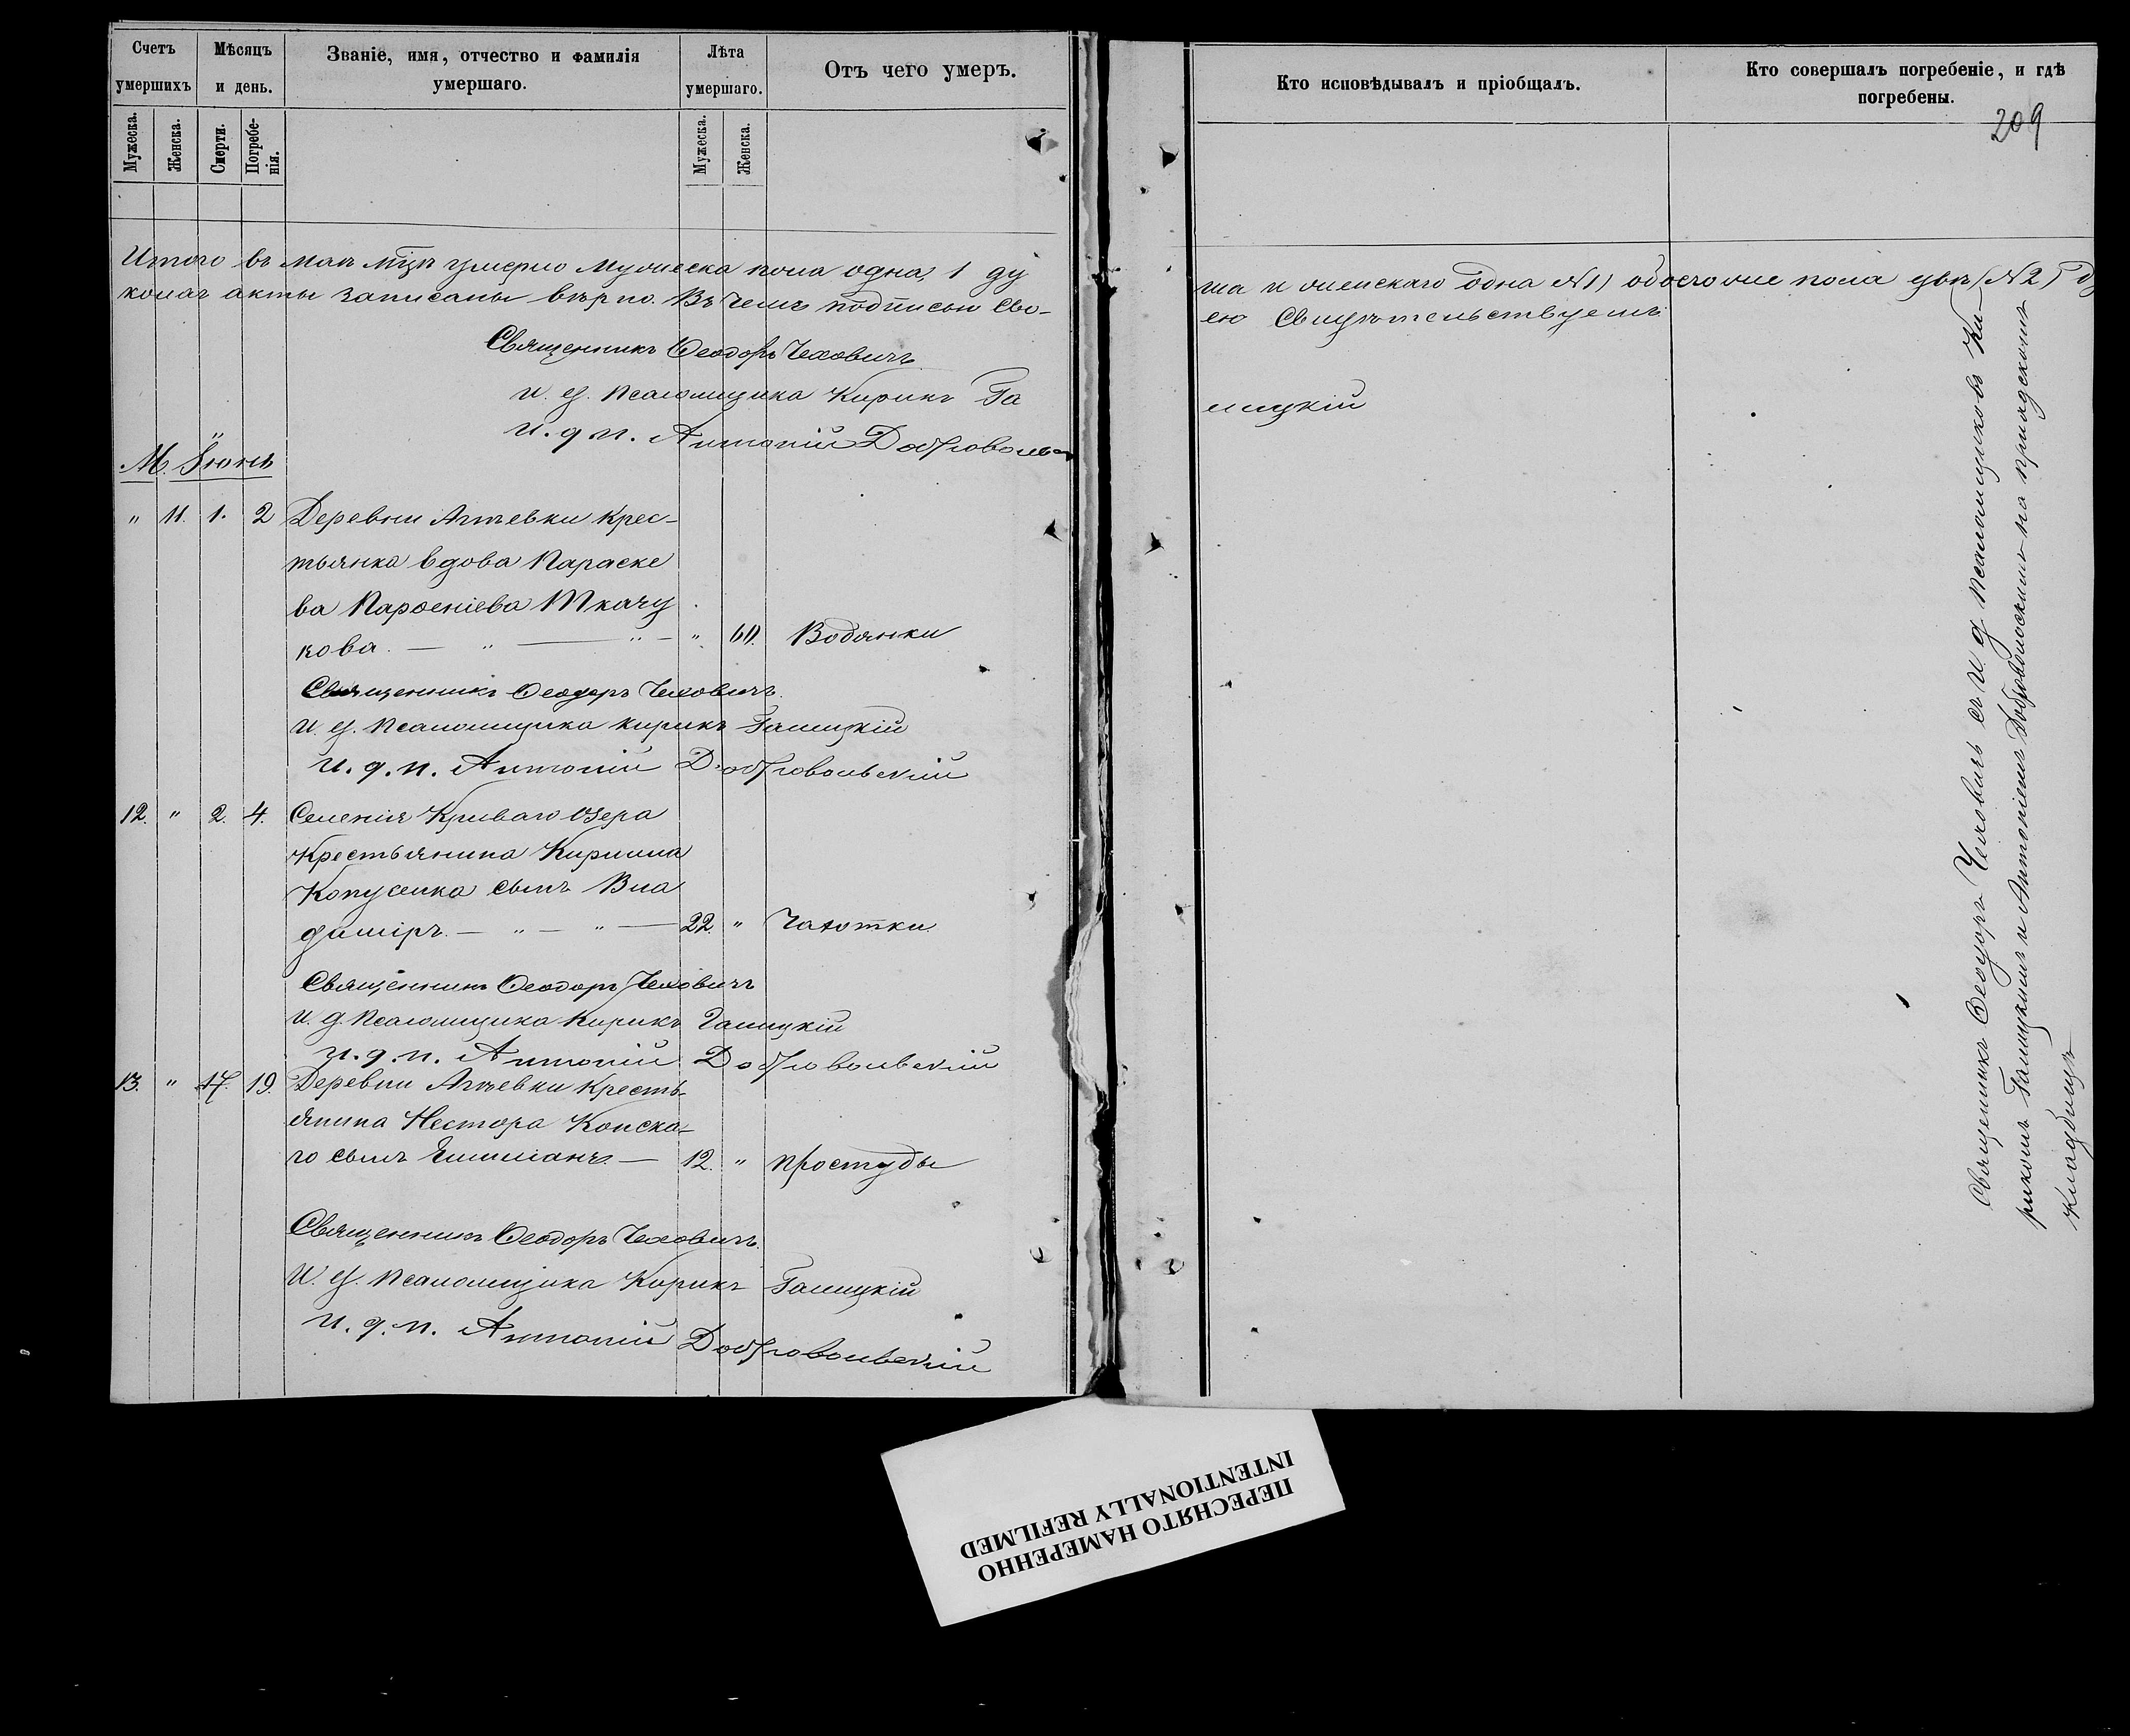 Счетъ умершихъ
Мѣсяцъ и день.
Званіе, имя, отчество и фамилія умершаго.
Лѣта умершаго.
Отъ чего умеръ.
Мужеска.
Женска.
Смерти.
Погребенія.
Мужеска.
Женска.
Итого въ маѣ мѣцѣ умерло мужеска пола одна, 1 ду
акты записаны вѣрно. Въ чемъ подписью сво-
Священникъ Ѳеодоръ Чехович
и. д. псаломщика Кирикъ Га
и. д. п. Антоній Добровольс
М. Іюнь
" 11. 1. 2 Деревни Крес-
тьянка вдова Параске
ва Парѳеніева Ткачу
кова. — " — " — " 60. Водянки
Священникъ Ѳеодоръ Чеховичъ
и. д. псаломщика Кирикъ Галицкій
и. д. п. Антоній Добровольскій
12. " 2. 4. Селенія Криваго Озера
Крестьянина Кирилла
сынъ Вла
диміръ. — " — " — 22. " Чахотки
Священникъ Ѳеодоръ Чеховичъ
и. д. псаломщика Кирикъ Галицкій
и. д. п. Антоній Добровольскій
13. " 17. 19. Деревни Кресть-
янина Нестора Конска-
го сынъ — 12. " простуды
Священникъ Ѳеодоръ Чеховичъ.
и. д. псаломщика Кирикъ Галицкій
и. д. п. Антоній Добровольскій
Кто исповѣдывалъ и пріобщалъ.
Кто совершалъ погребеніе, и гдѣ погребены.
209
ша и женскаго одна (№1) обоего же пола двѣ (№2)
ею Свидѣтельствуемъ
лицкій
Священникъ Ѳеодоръ Чеховичъ съ и. д псаломщиковъ Ки-
рикомъ Галицкимъ и Антоніемъ Добровольскимъ на приходскомъ
кладбищѣ
ПЕРЕСНЯТО НАМЕРЕННО
INTENTIONALLY REFILMED